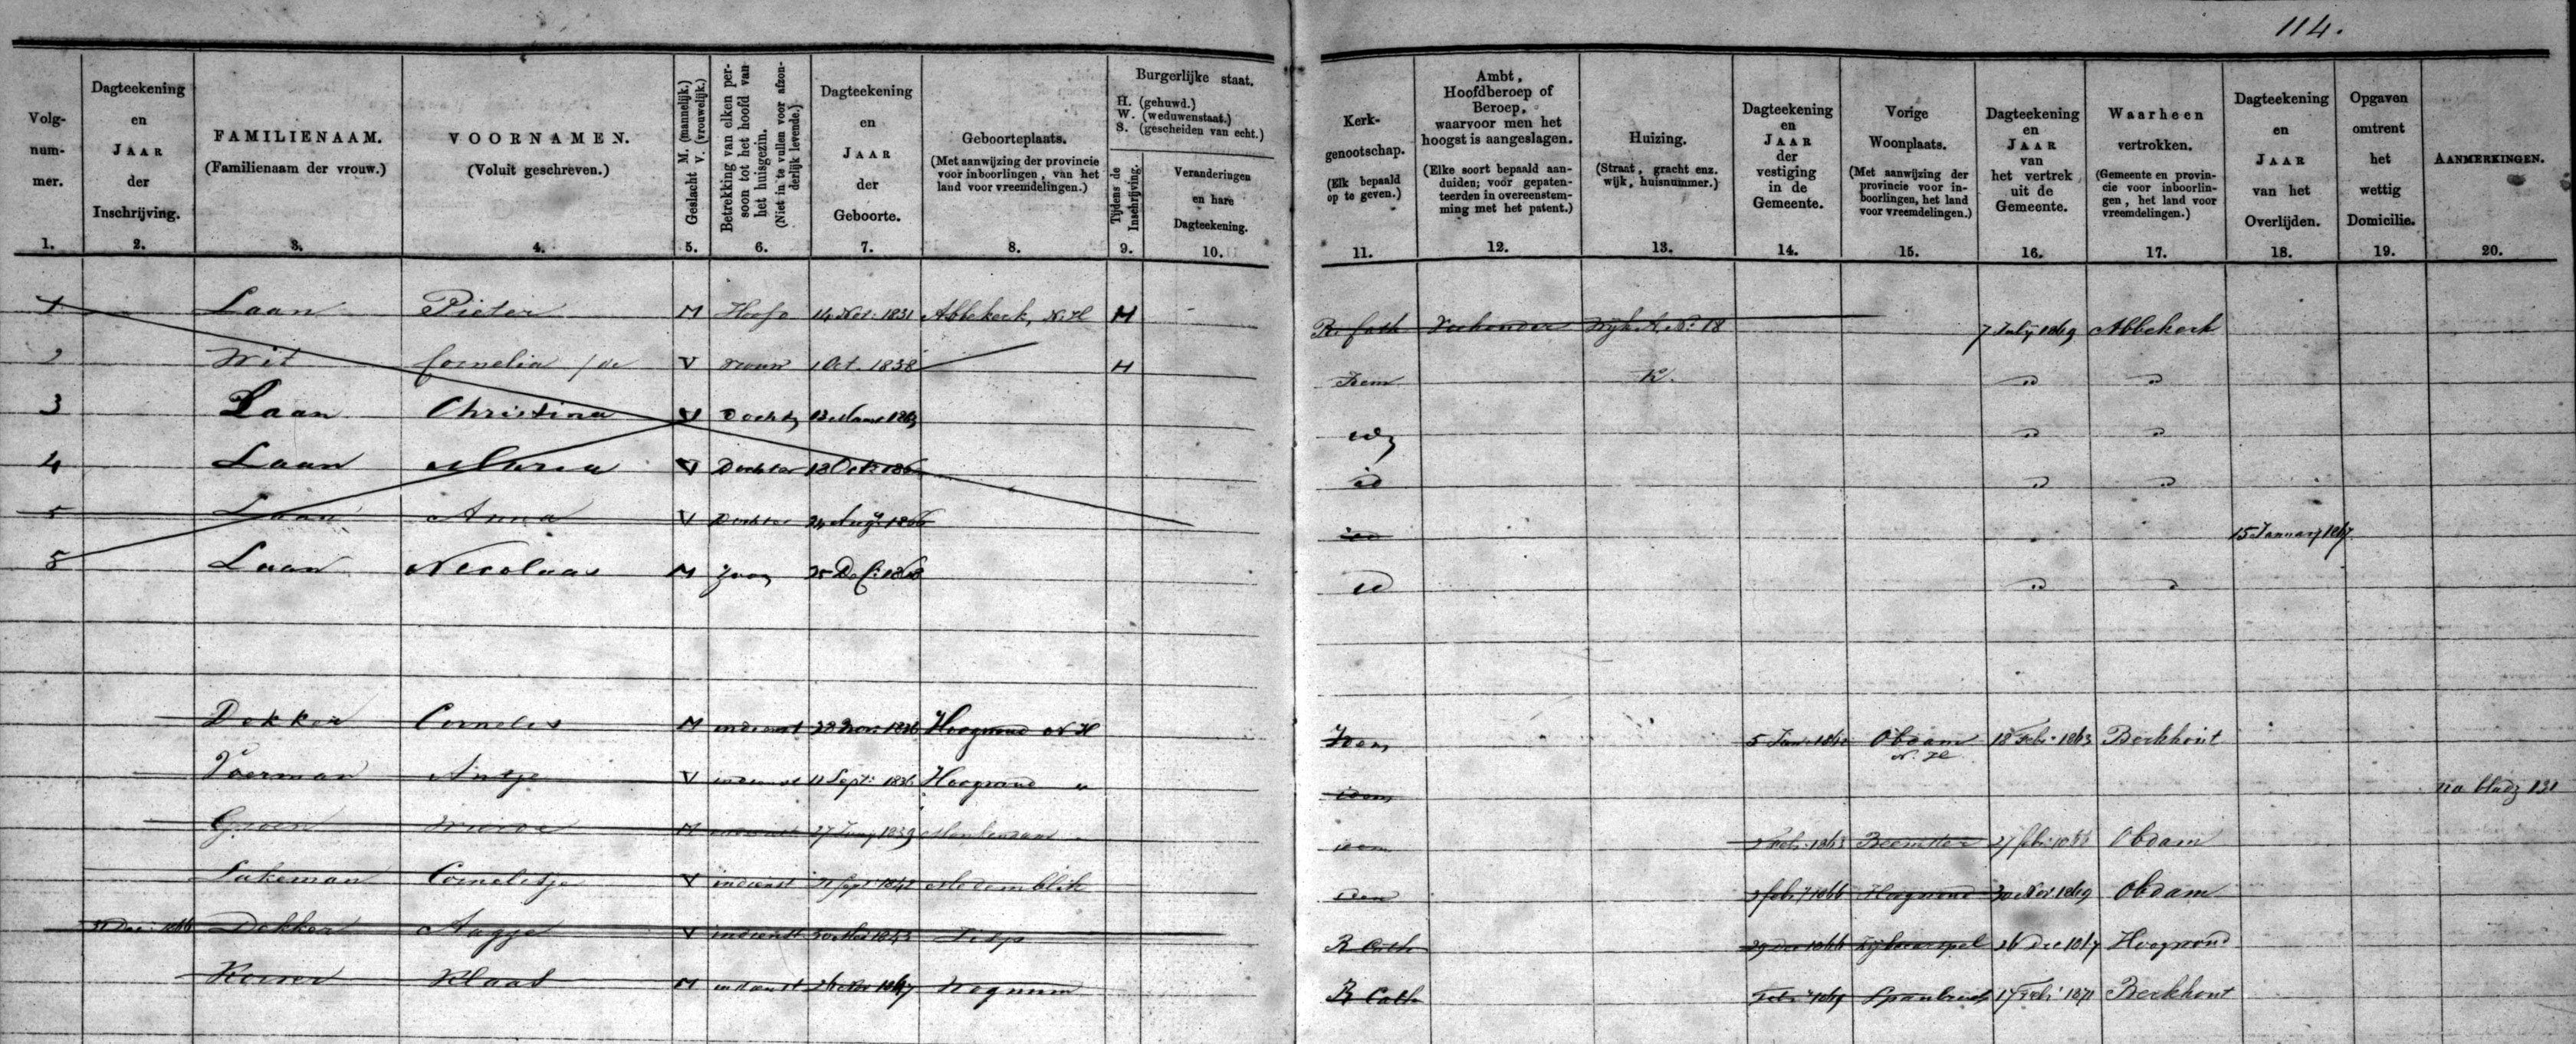 114.
Volg-
num-
mer.
1.
Dagteekening
en
JAAR
der
Inschrijving.
2.
FAMILIENAAM.
(Familienaam der vrouw.)
3.
VOORNAMEN.
(Voluit geschreven.)
4.
Geslacht M. (mannelijk.)
V. (vrouwelijk.)
5.
Betrekking van elken per-
soon tot het hoofd van
het huisgezin.
(Niet in te vullen voor afzon-
derlijk levende.)
6.
Dagteekening
en
JAAR
der
Geboorte.
7.
Geboorteplaats.
(Met aanwijzing der provincie
voor inboorlingen, van het
land voor vreemdelingen.)
8.
Burgerlijke staat.
H. (gehuwd.)
W. (weduwenstaat.)
S. (gescheiden van echt.)
Tijdens de
Inschrijving.
9.
Veranderingen
en hare
Dagteekening.
10.
Kerk-
genootschap.
(Elk bepaald
op te geven.)
11.
Ambt,
Hoofdberoep of
Beroep,
waarvoor men het
hoogst is aangeslagen.
(Elke soort bepaald aan-
duiden; voor gepaten-
teerden in overeenstem-
ming met het patent.)
12.
Huizing.
(Straat, gracht enz.
wijk, huisnummer.)
13.
Dagteekening
en
JAAR
der
vestiging
in de
Gemeente.
14.
Vorige
Woonplaats.
(Met aanwijzing der
provincie voor in-
boorlingen, het land
voor vreemdelingen.)
15.
Dagteekening
en
JAAR
van
het vertrek
uit de
Gemeente.
16.
Waarheen
vertrokken.
(Gemeente en provin-
cie voor inboorlin-
gen, het land voor
vreemdelingen.)
17.
Dagteekening
en
JAAR
van het
Overlijden.
18.
Opgaven
omtrent
het
wettig
Domicilie.
19.
AANMERKINGEN.
20.
1 Laan Pieter M Hoofd 14 1831 Abbekerk, N.H H R. Cath Veehouder Wijk A No 18 7 July 1869 Abbekerk
2 Wit Cornelia / de V vrouw 1 Oct. 1838 H Idem " "
3 Laan Christina V Dochter 13 Maart " "
4 Laan Maria V Dochter 18 Oct id " "
5 Laan Anna V Dochter 24 Aug 1866 15 January 1867
5 Laan Nicolaas M Zoon 25 Dec: 1868 id " "
Dekker Cornelis M indienst 28 Nov: 1836 Hoogwoud N H Idem 5 Obdam N. H. 18 Feb: 1863 Berkhout
Voerman Antje V indienst 11 Sept: Hoogwoud " idem na bladz 121
Groen M indienst 27 1839 idem 1863 Beemster 27 feb: Obdam
Lakeman Cornelisje V indienst 21 Sept 1842 Medemblik idem feb 1866 Hoogwoud 1869 Obdam
31 Dec: 1866 Dekker Aagje V indienst 1843 R Cath 29 Dec 1866 26 Dec 1867 Hoogwoud
Klaas M indienst 26 Nov 1847 Wognum R Cath Spanbroek 17 Feb: 1871 Berkhout